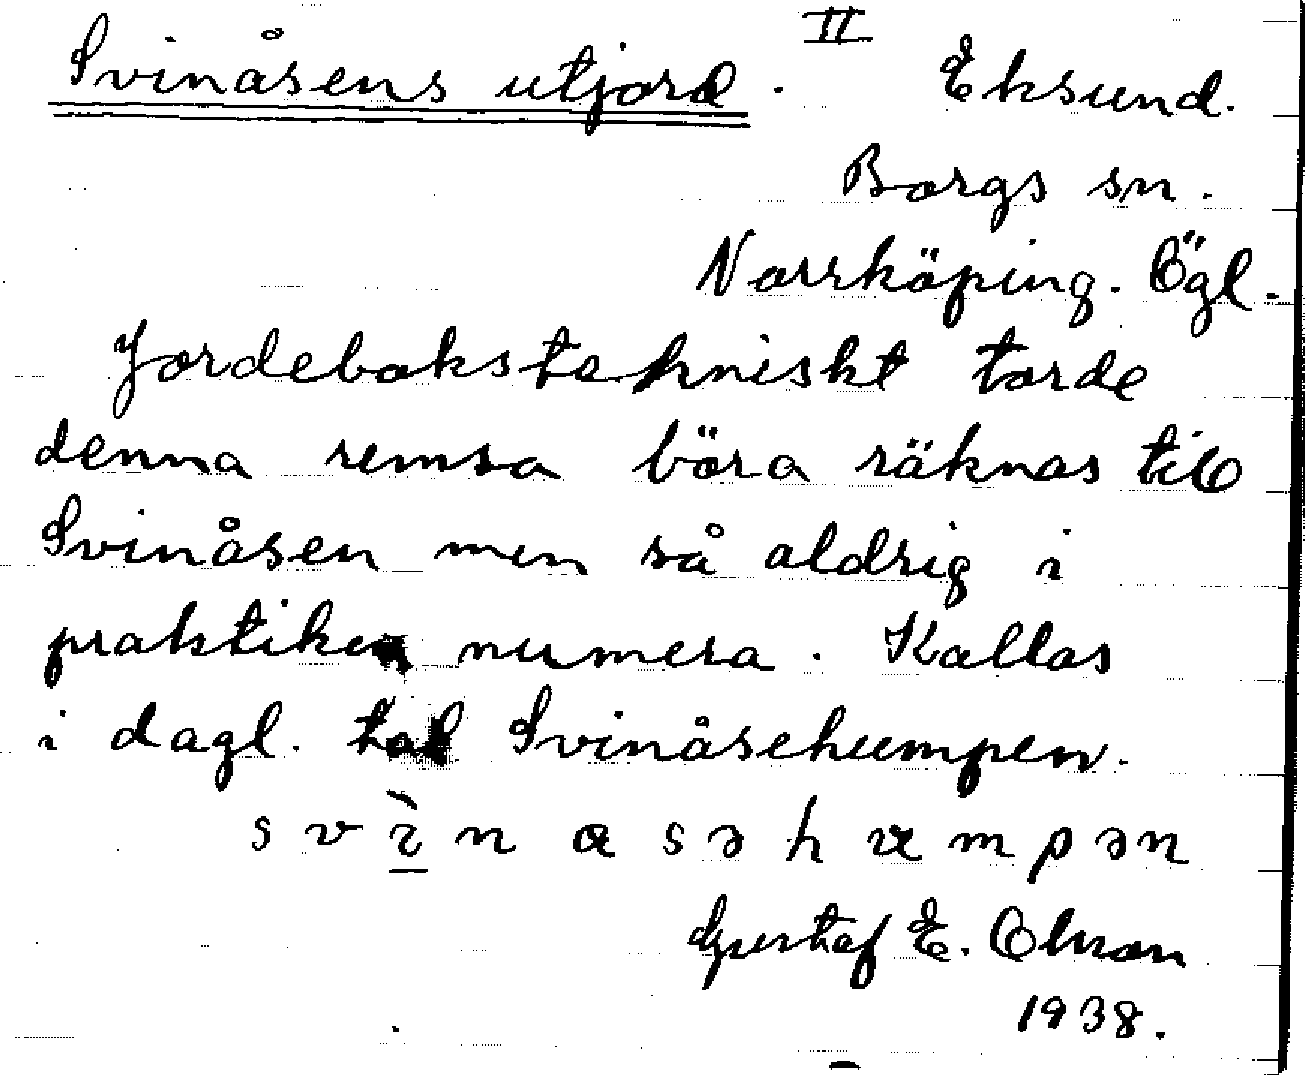 Svinåsens utjord. II Eksund.
Borgs sn.
Norrköping. Ögl.
Jordebokstekniskt torde
denna remsa böra räknas till
Svinåsen men så aldrig i
praktiken numera. Kallas
i dagl. tal Svinåsehumpen.
Gustaf E. Olson
1938.